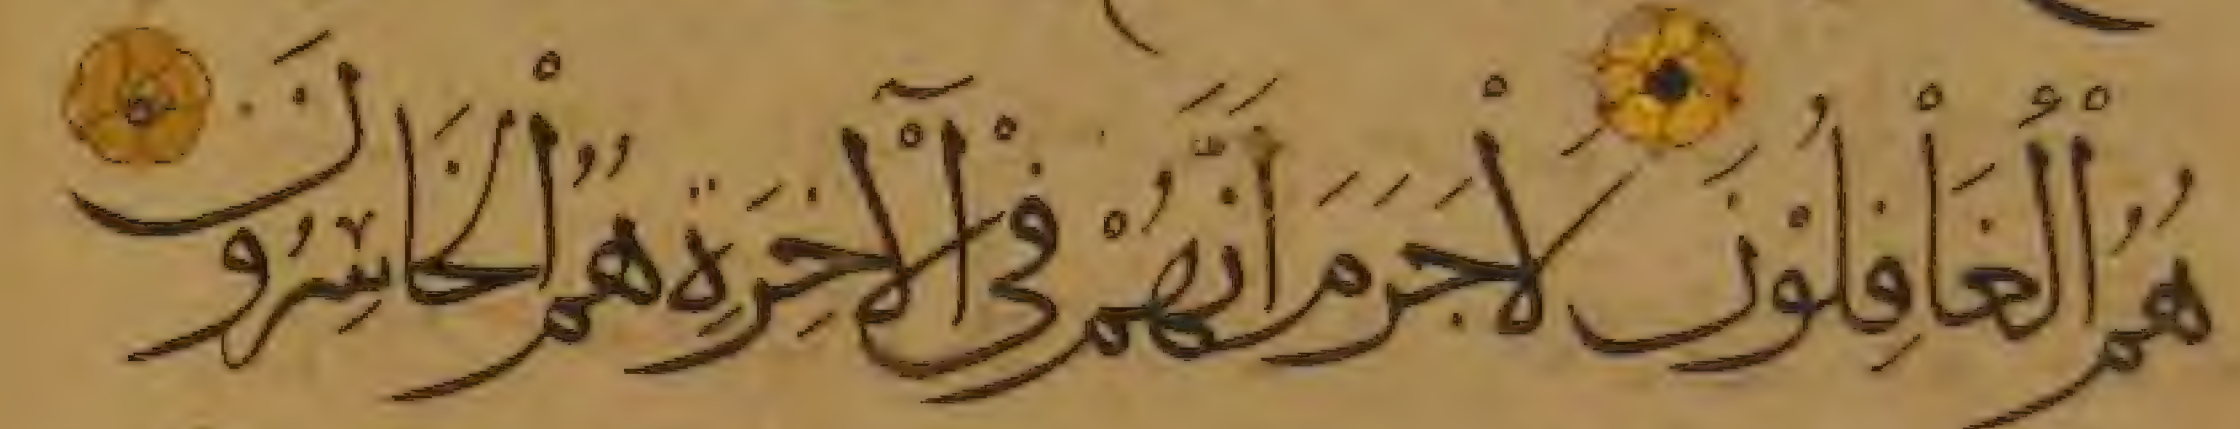 هُمُ ٱلْغَافِلُوْنَ لَا جَرَمَ أَنَّهُمْ فِي ٱلْآخِرَةِ هُمُ ٱلْخَاسِرُونَ